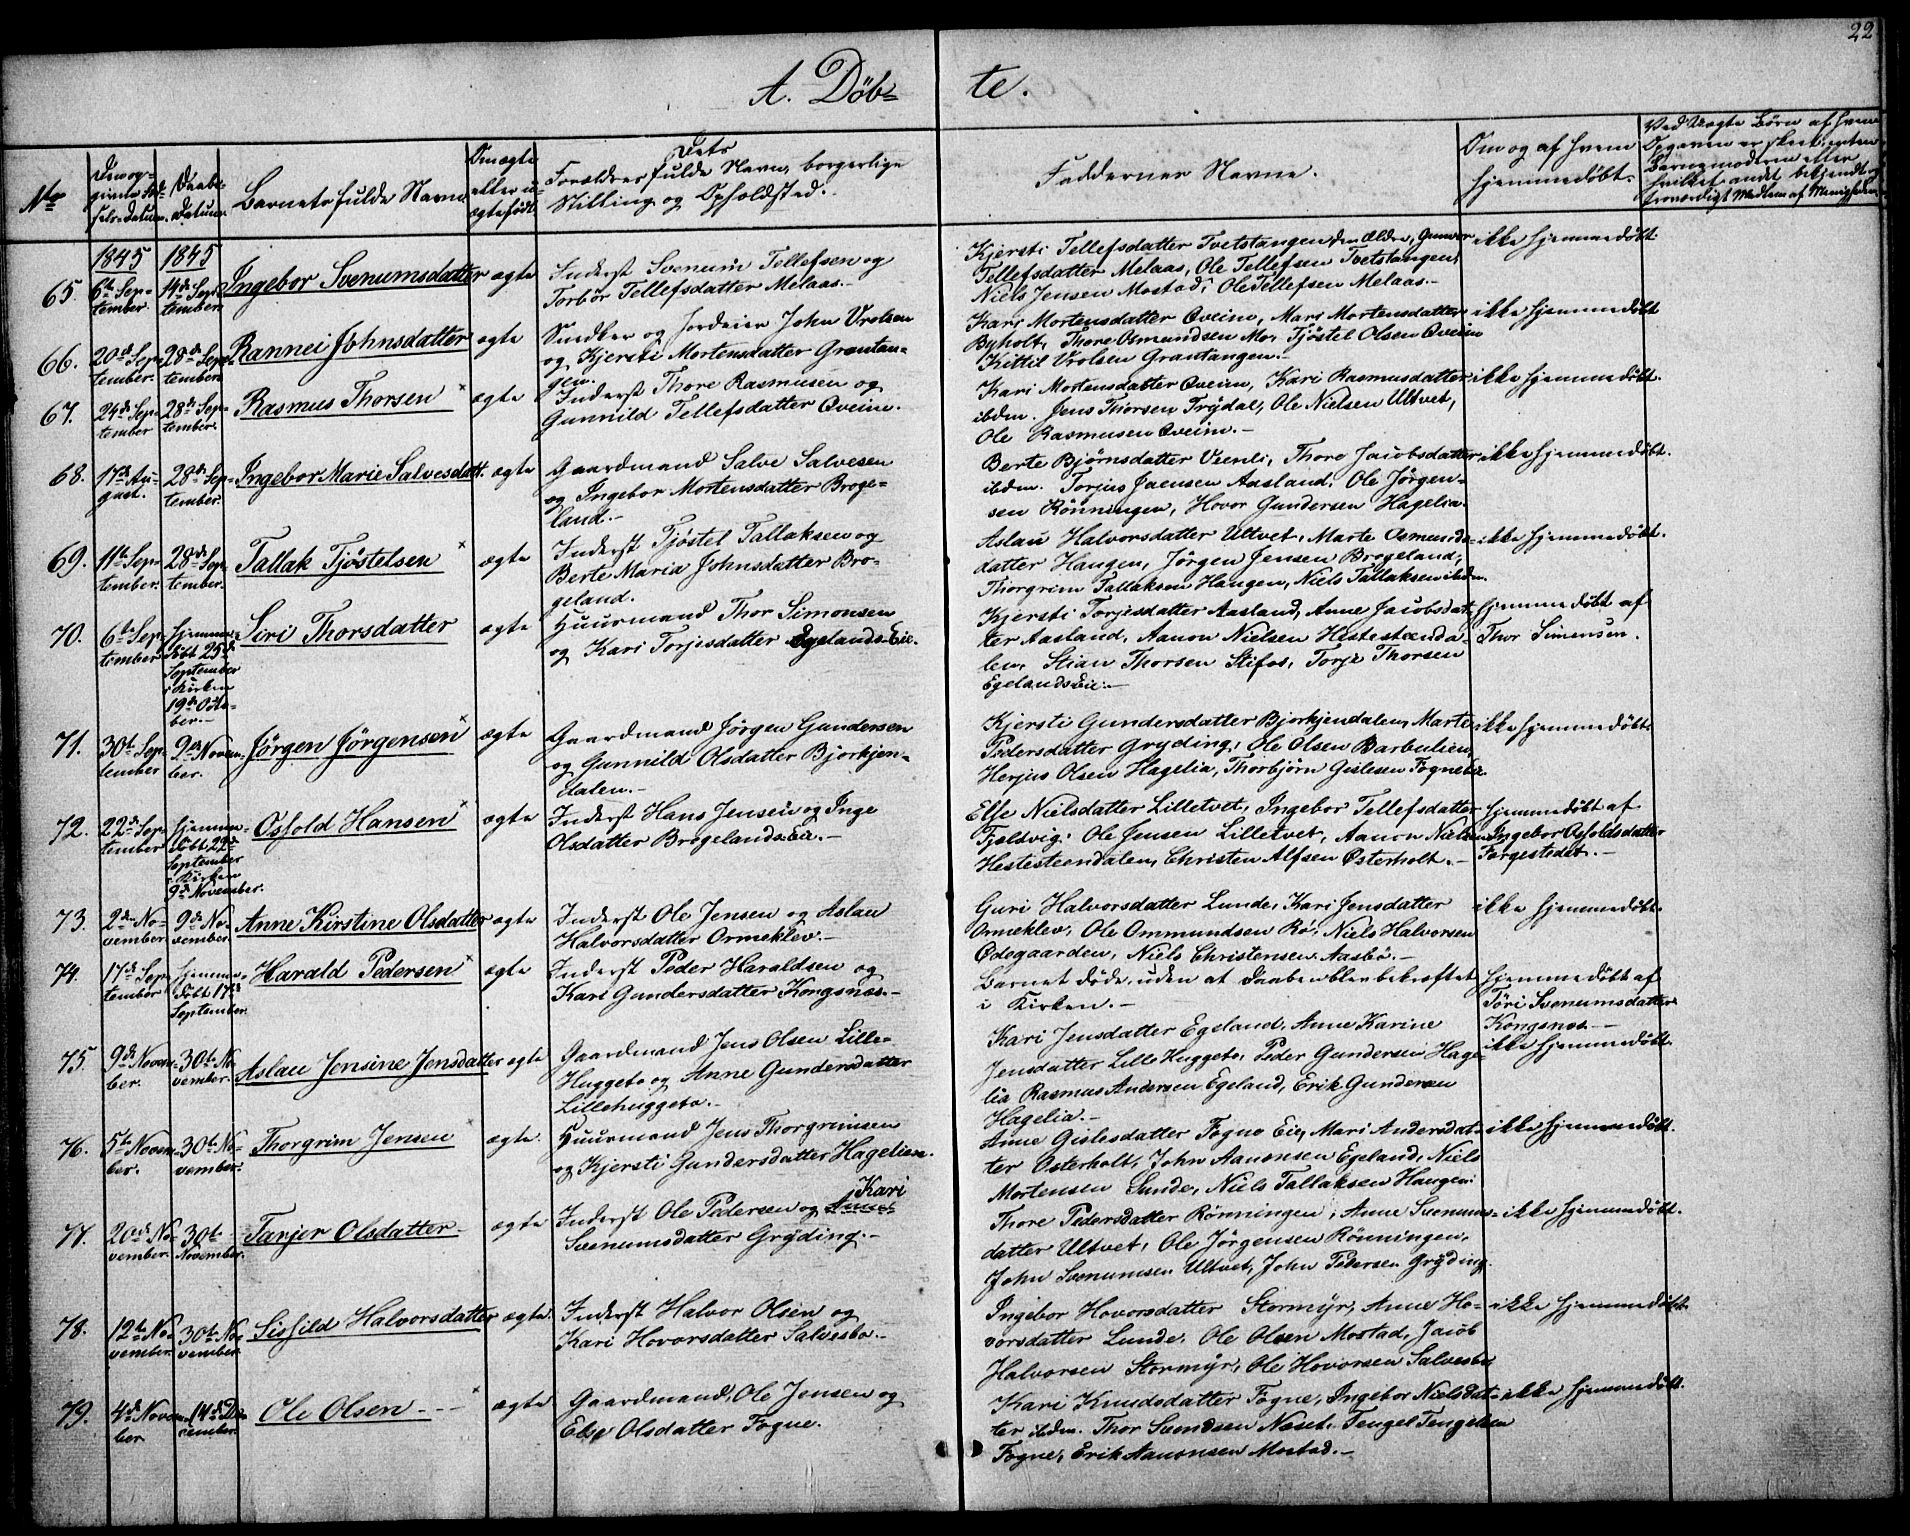 22
A. Döb= te.
No
Den op-
givne Föd-
sels-Datum.
Daabs-
Datum.
Barnets fulde Navn
Om ægte
eller u-
ægte född.
Dets
Forældres fulde Navn, borgerlige
Stilling og Opholdsted.
Faddernes Navne.
Om og af hvem
hjemmedöbt.
Ved uægte Börn af hvem
Opgaven er skeet, enten
Barnemoderen eller
hvilket andet bekjendt og
troværdigt Medlem af Menigheden
1845 1845
65. 6te Sep-
tember.
14de Sep-
tember.
Ingebor Svenumsdatter
ægte
Inderst Svenum Tellefsen og
Torbör Tellefsdatter Melaas.-
Kjersti Tellefsdatter Tvetstangen den Ældre, Gunvor
Tellefsdatter Melaas, Ole Tellefsen Tvetstangen,
Niels Jensen Mostad, Ole Tellefsen Melaas.-
ikke hjemmedöbt.
66. 20de Sep-
tember.
28de Sep-
tember.
Rannei Johnsdatter
ægte
Smedker og Jordeier John Vrolsen
og Kjersti Mortensdatter Grantan-
gen.
Kari Mortensdatter Oveim, Mari Mortensdatter
Byholt, Thore Omundsen Mo, Tjöstel Olsen Oveim
Kittil Vrolsen Grantangen.-
ikke hjemmedöbt
67. 24de Sep-
tember
28de Sep-
tember.
Rasmus Thorsen ×
ægte
Inderst Thore Rasmusen og
Gunnild Tellefsdatter Oveim.
Kari Mortensdatter Oveim, Kari Rasmusdatter
ibdm. Jens Thorsen Trydal, Ole Nielsen Ultvet,
Ole Rasmusen Oveim.-
ikke hjemmedöbt.
68. 17de Au-
gust.
28de Sep-
tember.
Ingebor Marie Salvesdatt.
ægte
Gaardmand Salve Salvesen
og Ingebor Mortensdatter Broge-
land.-
Berte Björnsdatter Veenli, Thore Jacobsdatter
ibdm. Torjus Jaensen Aasland, Ole Jörgen-
sen Rönningen, Hovor Gundersen Hagelia.
ikke hjemmedöbt.
69. 11te Sep-
tember.
28de Sep-
tember.
Tallak Tjöstelsen ×
ægte
Inderst Tjöstel Tallaksen og
Berte Maria Johnsdatter Bro-
geland.
Aslau Halvorsdatter Ultvet, Marte Osmunds-
datter Haugen, Jörgen Jensen Brogeland,
Thorgrim Tallaksen Haugen, Niels Tallaksen ibdm.
ikke hjemmedöbt.
70. 6te Sep-
tember
hjemme-
döbt 25de
September
i Kirken
19de Octo-
ber.-
Siri Thorsdatter
ægte
Huurmand Thor Simonsen
og Kari Torjesdatter Egelands Eie.
Kjersti Torjesdatter Aasland, Anne Jacobsdat-
ter Aasland, Aanon Nielsen Hesteteenda-
len, Stian Thorsen Stifos, Torje Thorsen
Egelands Eie.-
hjemmedöbt af
Thor Simensen.
71. 30te Sep-
tember
9de Novem-
ber.
Jörgen Jörgensen ×
ægte
Gaardmand Jörgen Gundersen
og Gunnild Olsdatter Bjorkjen-
dalen.-
Kjersti Gundersdatter Bjorkjendalen, Marte
Pedersdatter Gryding, Ole Olsen Barbulien,
Herjus Olsen Hagelia, Thorbjörn Gislesen Fogne Eie.
ikke hjemmedöbt.
72. 22de Sep-
tember
hjemme-
döbt 29de
September
i Kirken
9de November.
Osfold Hansen ×
ægte
Inderst Hans Jensen og Inge
Olsdatter Brogelands Eie.-
Else Nielsdatter Lilletvet, Ingebor Tellefsdatter
Fjeldvig, Ole Jensen Lilletvet, Aanon Nielsen
Hestesteendalen, Christen Alfsen Osterholt.-
hjemmedöbt af
Ingebor Osfoldsdatter
Fargestedet.-
73. 2den No-
vember.
9de No-
vember.
Anne Kirstine Olsdatter
ægte
Inderst Ole Jensen og Aslau
Halvorsdatter Ormeklev.-
Guri Halvorsdatter Lunde, Kari Jensdatter
Ormeklev, Ole Ommundsen Rö, Niels Halvorsen
Ödegaarden, Niels Christensen Aasbö.-
ikke hjemmedöbt.
74. 17de Sep-
tember
hjemme-
döbt 17de
September.
Harald Pedersen ×
ægte
Inderst Peder Haraldsen og
Kari Gundersdatter Kongsnæs.-
Barnet döde, uden at Daaben blev bekræftet
i Kirken.-
hjemmedöbt af
Töri Svenumsdatter
Kongsnæs.-
75. 9de Novem-
ber.
30te No-
vember.
Aslau Jensine Jensdatter
ægte
Gaardmand Jens Olsen Lille-
Huggebo og Anne Gundersdatter
Lillehuggebo.-
Kari Jensdatter Egeland, Anne Karine
Jensdatter Lille Huggebo, Peder Gundersen Hage-
lia Rasmus Andersen Egeland, Erik Gundersen
Hagelia.-
ikke hjemmedöbt.
76. 5te Novem-
ber.
30te No-
vember.
Thorgrim Jensen
ægte.
Huurmand Jens Thorgrimsen
og Kjersti Gundersdatter Hagelien.
Anne Gislesdatter Fogne Eie, Mari Andersdat-
ter Osterholt, John Aanonsen Egeland, Niels
Mortensen Sunde, Niels Tallaksen Haugen.
ikke hjemmedöbt.
77. 20de No-
vember.
30te
November.
Tarjer Olsdatter -
ægte
Kari
Inderst Ole Pedersen og Anne
Svenumsdatter Gryding.-
Thore Pedersdatter Rönningen, Anne Svenums-
datter Ultvet, Ole Jörgensen Rönningen,
John Svenumsen Ultvet, John Pedersen Gryding.
ikke hjemmedöbt.
78. 12te No-
vember.
30te No-
vember.
Sissild Halvorsdatter
ægte.
Inderst Halvor Olsen og
Kari Hovorsdatter Salvesbo.-
Ingebor Hovorsdatter Stormyr, Anne Ho-
vorsdatter Lunde, Ole Olsen Mostad, Jacob
Halvorsen Stormyr, Ole Hovorsen Salvesbo
ikke hjemmedöbt.
79. 4de Novem-
ber
14de De-
cember.
Ole Olsen - - - ×
ægte
Gaardmand Ole Jensen og
Else Olsdatter Fogne.
Kari Knudsdatter Fogne, Ingebor Nielsdat-
ter ibdm. Thor Svendsen Næset. Tengel Tengelsen
Fogne, Erik Aanonsen Mostad.-
ikke hjemmedöbt.